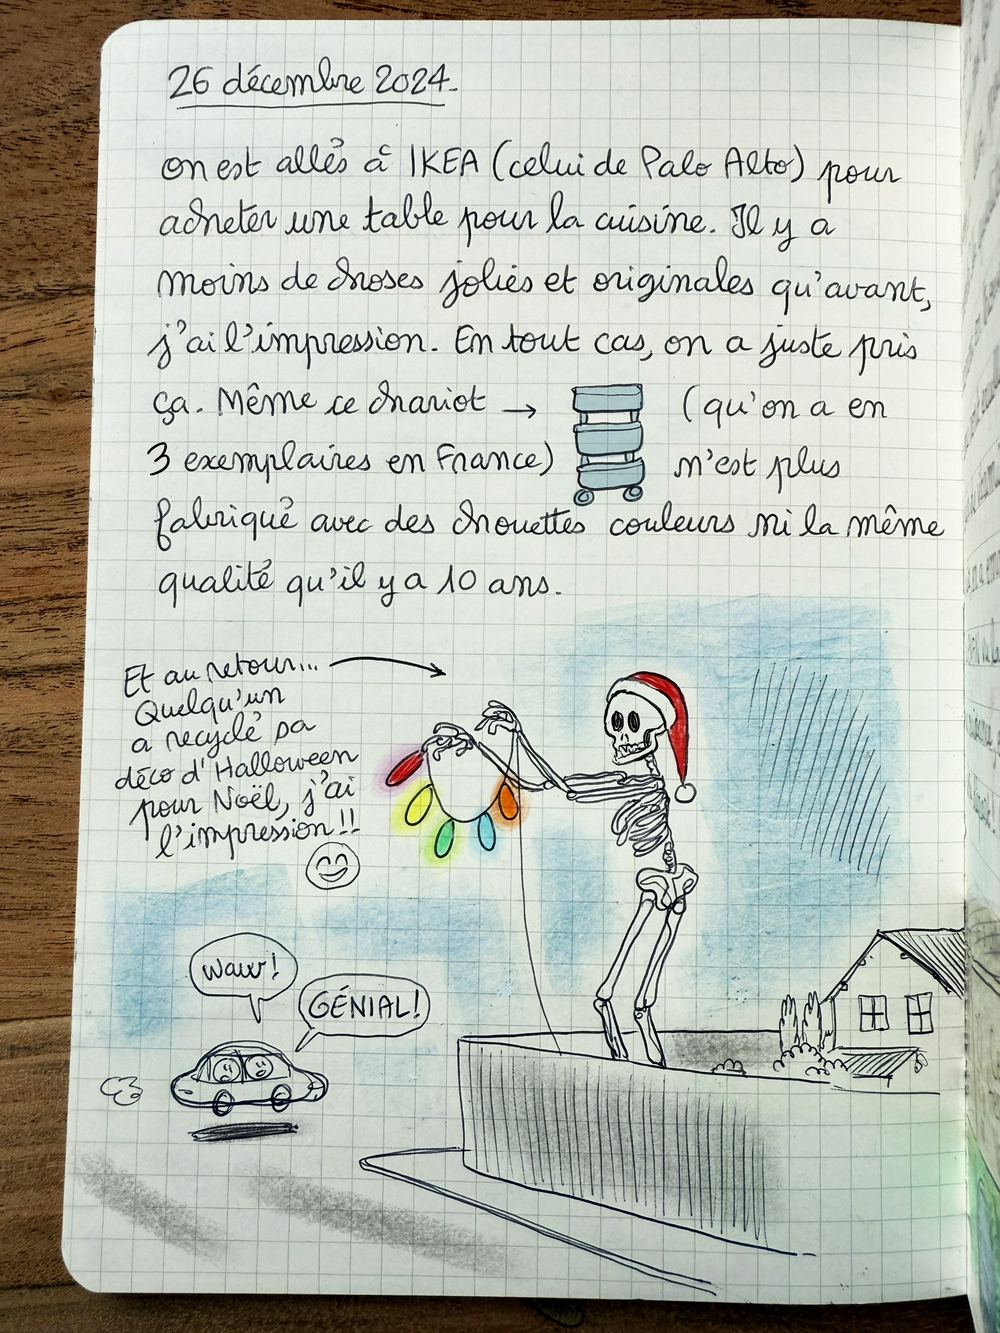 26 décembre 2024.
on est allés à IKEA (celui de Palo Alto) pour
acheter une table pour la cuisine. Il y a
moins de choses jolies et originales qu'avant,
j'ai l'impression. En tout cas, on a juste pris
ça. Même ce chariot → (qu'on a en
3 exemplaires en France) n'est plus
fabriqué avec des chouettes couleurs ni la même
qualité qu'il y a 10 ans.
Et au retour...
Quelqu'un
a recyclé sa
déco d'Halloween
pour Noël, j'ai
l'impression!!
waw!
GÉNIAL!